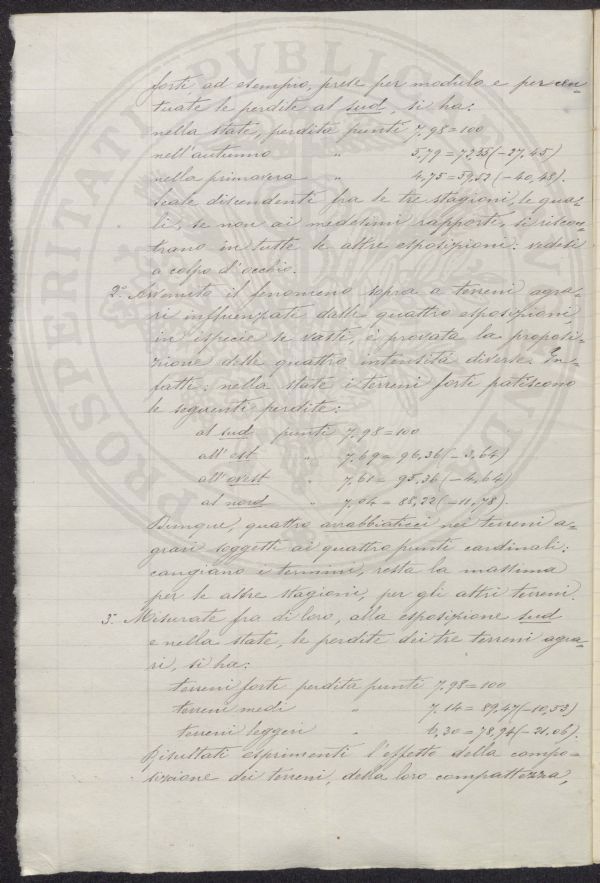 forti, ad esempio, prese per modulo e percen-
tuate le perdite al sud, si ha:
nella state, perdita punti 7,98=100
nell'autunno " 5,79=72,55(-27,45)
nella primavera " 4,75=59,52(-40,48).
Scale discendenti fra le tre stagioni, le qua-
li, se non ai medesimi rapporti, si riscon-
trano in tutte le altre esposizioni: vedesi
a colpo d'occhio.
2° Avvenuto il fenomeno sopra a terreni agra-
ri influenzate dalle quattro esposizioni,
in ispecie se vaste, è provata la proposi-
zione delle quattro intensità diverse. In-
fatti: nella state i terreni forti patiscono
le seguenti perdite:
al sud punti 7,98=100
all'est " 7,69=96,36(-3,64)
all'ovest " 7,61=95,36(-4,64)
al nord " 7,04=88,22(-11,78).
Dunque, quattro arrabbiaticci nei terreni a-
grari soggetti ai quattro punti cardinali:
cangiano i termini, resta la massima
per le altre stagioni, per gli altri terreni.
3° Misurate fra di loro, alla esposizione sud
e nella state, le perdite dei tre terreni agra-
ri, si ha:
terreni forti perdita punti 7,98=100
terreni medi " 7,14=89,47(-10,53)
terreni leggeri " 6,30=78,94(-21,06).
Risultati esprimenti l'effetto della compo-
sizione dei terreni, della loro compattezza,
PROSPERITATI PVBLICAE